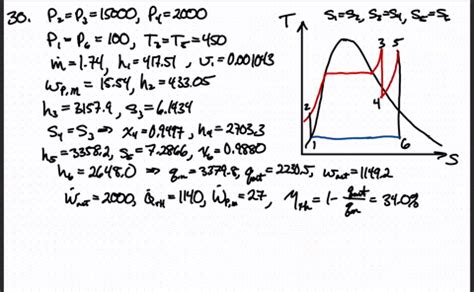 30. P₂=P₃=15000, P₄=2000
P₁=P₆=100, T₃=T₅=450
ṁ=1.74, h₁=417.51, v₁=0.001043
w_P,in=15.54, h₂=433.05
h₃=3157.9, s₃=6.1434
s₄=s₃ → x₄=0.9497, h₄=2703.3
h₅=3358.2, s₅=7.2866, x₆=0.9880
h₆=2648.0 → q_in=3379.8, q_out=2230.5, w_net=1149.2
Ẇ_net=2000, Q̇_RH=1140, Ẇ_P,in=27, η_th=1-q_out/q_in=34.0%
s₁=s₂, s₃=s₄, s₅=s₆
T
3 5
2
4
1 6
s